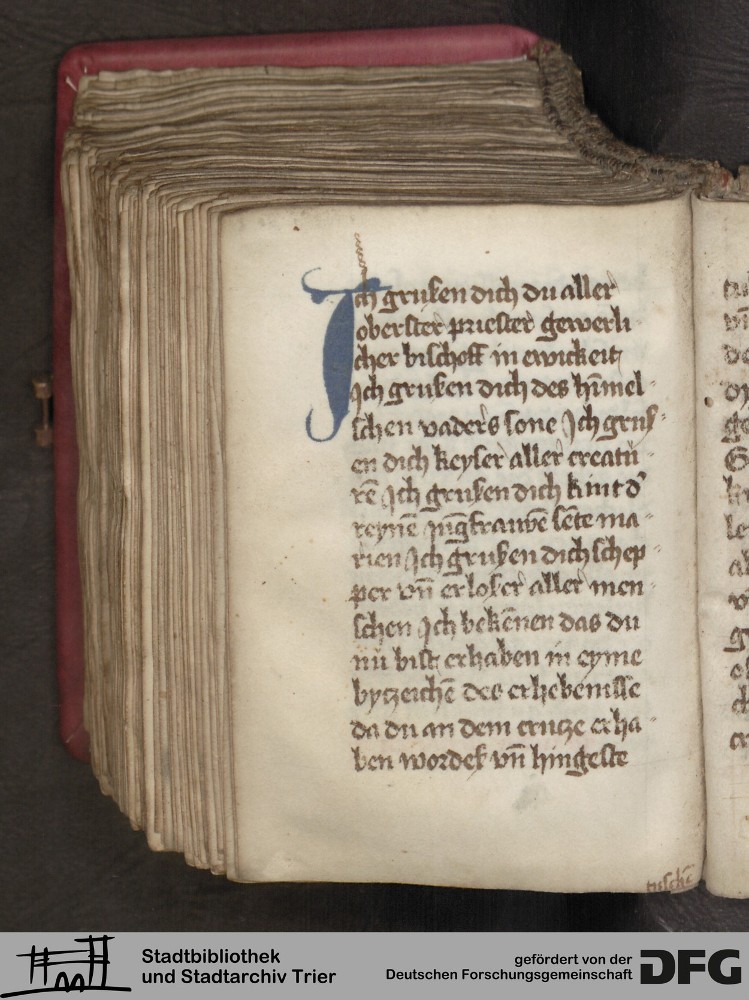 Ich gruſen dich du aller
oberſter prieſter gewerli
cher biſchoff in ewickeit
Ich gruſen dich des hīmel-
ſchen vaders ſone Ich gruſ-
en dich keyſer aller creatu-
rē Ich gruſen dich kint d'
reynē jūgfrauwē ſēte ma-
rien Ich gruſen dich ſchep-
per vn̄ erloſer aller men-
ſchen Ich bekēnen das du
nu biſt erhaben in eyme
bytzeichē des erhebeniſſe
da du an dem crutze erha-
ben wordeſ vn̄ hingeſte
tuſchē
Stadtbibliothek
und Stadtarchiv Trier
gefördert von der
Deutschen Forschungsgemeinschaft
DFG